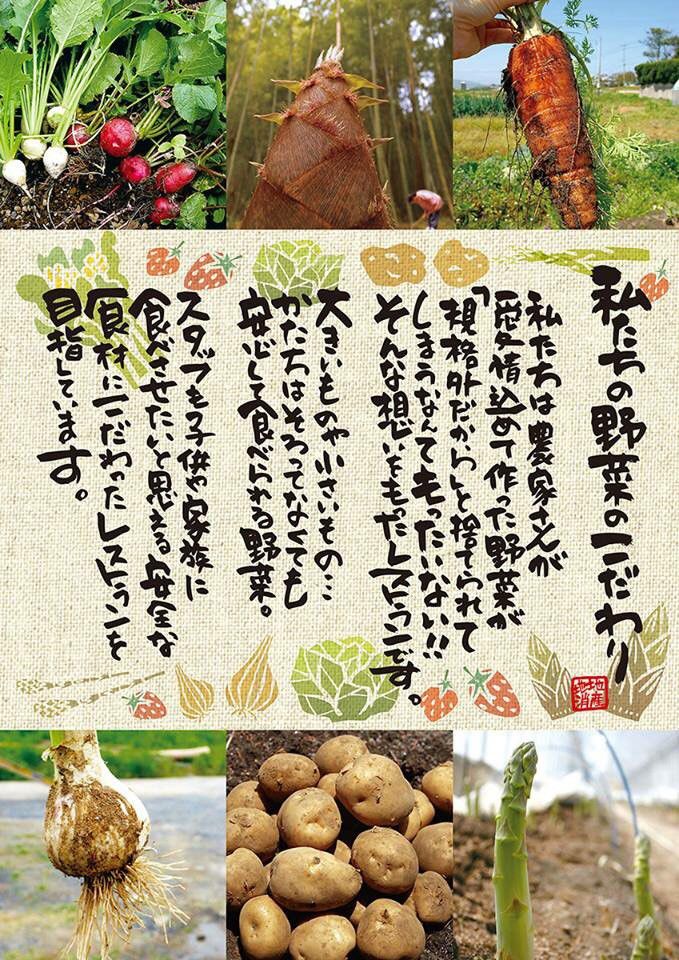 私たちの野菜のこだわり
私たちは農家さんが
愛情込めて作った野菜が
「規格外だから」と捨てられて
しまうなんてもったいない!!
そんな想いをもったレストランです。
大きいものや小さいもの…
かたちはそろってなくても
安心して食べられる野菜。
スタッフも子供や家族に
食べさせたいと思える安全な
食材にこだわったレストランを
目指しています。